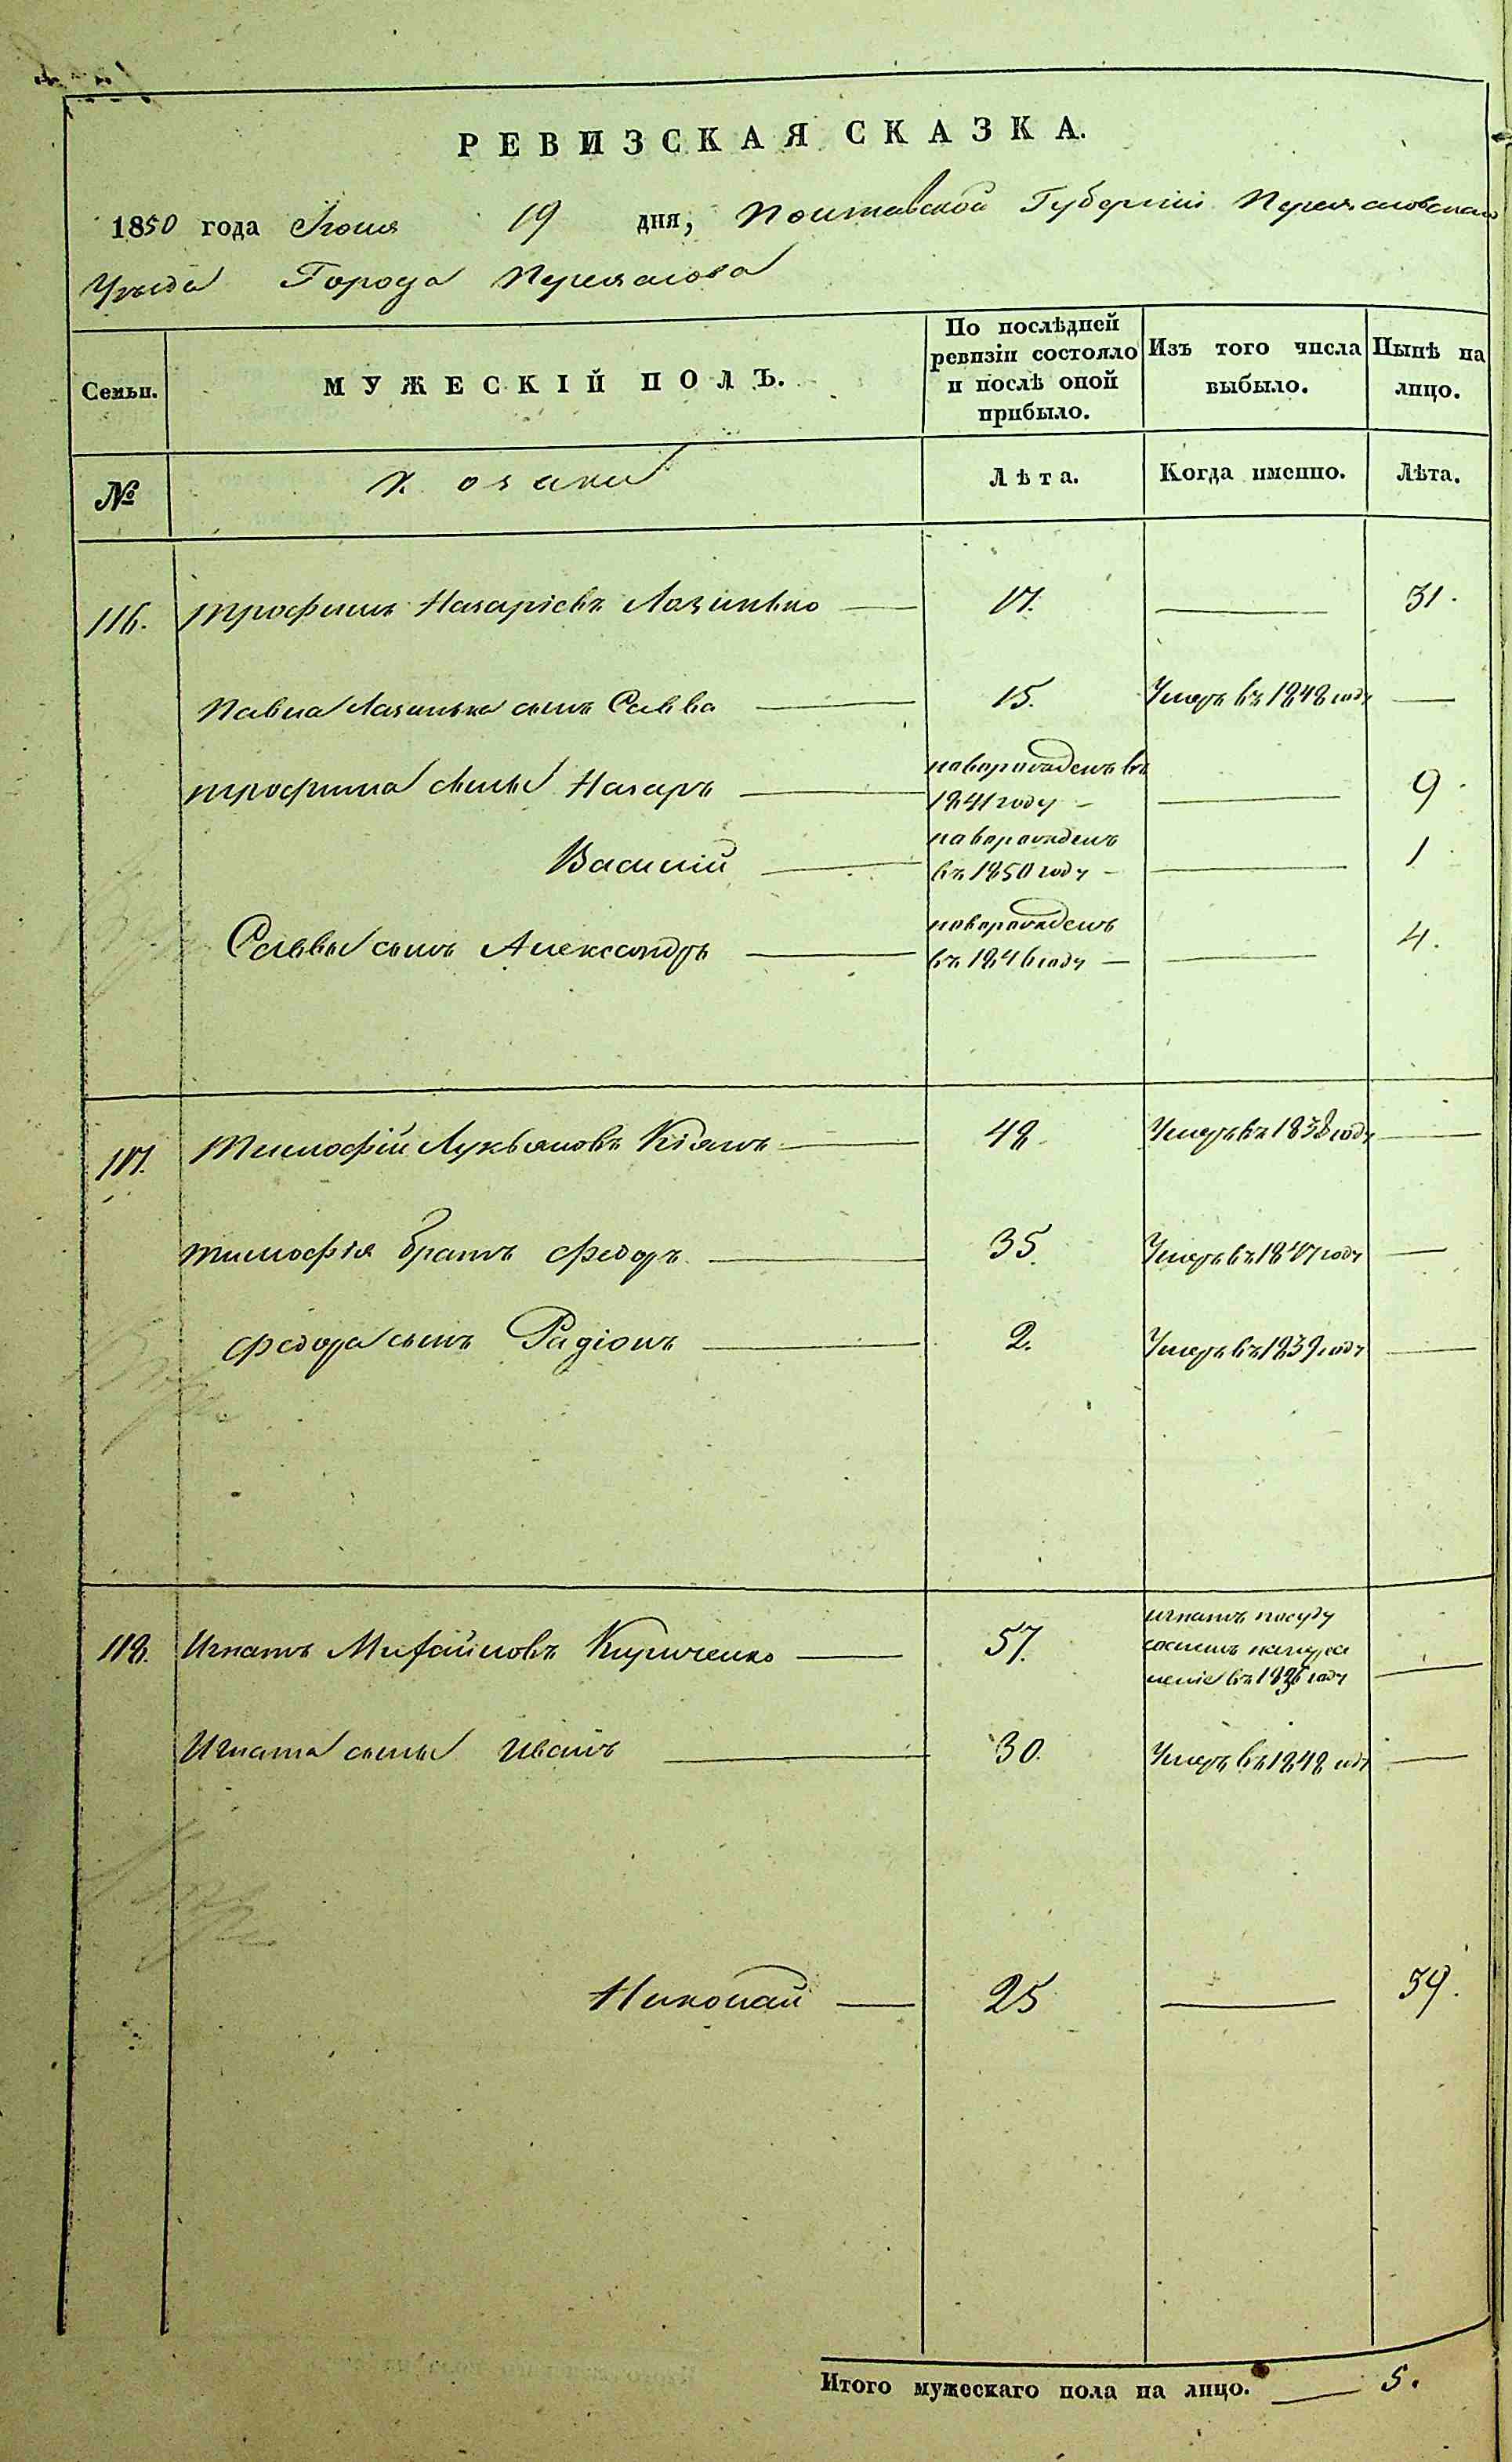 РЕВИЗСКАЯ СКАЗКА.
1850 года Июня 19 дня, Полтавской Губерніи Переяславскаго
Уѣзда Города Переяслова
Семьи.
МУЖЕСКІЙ ПОЛЪ.
По послѣдней ревизіи состояло и послѣ оной прибыло.
Изъ того числа выбыло.
Нынѣ на лицо.
№
Козаки
Лѣта.
Когда именно.
Лѣта.
116. Трофимъ Назаріевъ Лазинько — 17. — 31.
Павла Лазинька сынъ Савва — 15. Умеръ въ 1848 году —
Трофима сыны Назаръ — новорожденъ въ 1841 году — — 9.
Василій — новорожденъ въ 1850 году — — 1
Саввы сынъ Александръ — новорожденъ въ 1846 году — — 4.
117. Тимофій Лукьяновъ Кіянъ — 48 Умеръ въ 1838 году —
Тимофія братъ Федоръ — 35. Умеръ въ 1847 году —
Федора сынъ Радіонъ — 2. Умеръ въ 1839 году —
118. Игнатъ Михайловъ Кириченко — 57. Игнатъ посуду сосланъ на поселеніе въ 1836 году —
Игната сыны Иванъ — 30. Умеръ въ 1848 году —
Николай — 25 — 39.
Итого мужескаго пола на лицо. — 5.